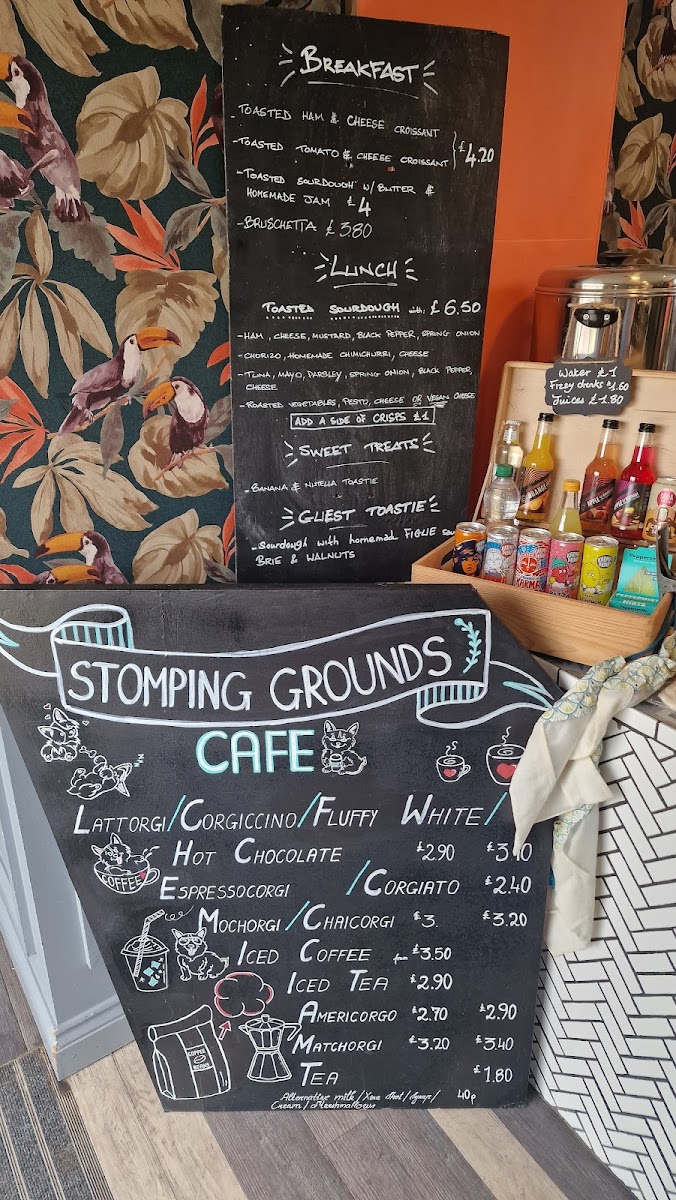 BREAKFAST
- TOASTED HAM & CHEESE CROISSANT
- TOASTED TOMATO & CHEESE CROISSANT £4.20
- TOASTED SOURDOUGH W/ BUTTER &
HOMEMADE JAM £4
- BRUSCHETTA £3.80
LUNCH
TOASTED SOURDOUGH with: £6.50
- HAM, CHEESE, MUSTARD, BLACK PEPPER, SPRING ONION
- CHORIZO, HOMEMADE CHIMICHURRI, CHEESE
- TUNA, MAYO, PARSLEY, SPRING ONION, BLACK PEPPER,
CHEESE
- ROASTED VEGETABLES, PESTO, CHEESE OR VEGAN CHEESE
ADD A SIDE OF CRISPS £1
SWEET TREATS
- BANANA & NUTELLA TOASTIE
GUEST TOASTIE
- Sourdough with homemad FIGUE
BRIE & WALNUTS
Water £1
Fizzy drinks £1.60
Juices £1.80
KARMA
PEPPERMINT
MINTS
STOMPING GROUNDS
CAFE
LATTORGI/CORGICCINO/FLUFFY WHITE/
HOT CHOCOLATE £2.90
ESPRESSOCORGI /CORGIATO £2.40
MOCHORGI/CHAICORGI £3. £3.20
ICED COFFEE from £3.50
ICED TEA £2.90
AMERICORGO £2.70 £2.90
MATCHORGI £3.20 £3.40
TEA £1.80
Alternative milk/Xtra shot/syrup/ 40p
Cream/Marshmallows
COFFEE
COFFEE
BEANS